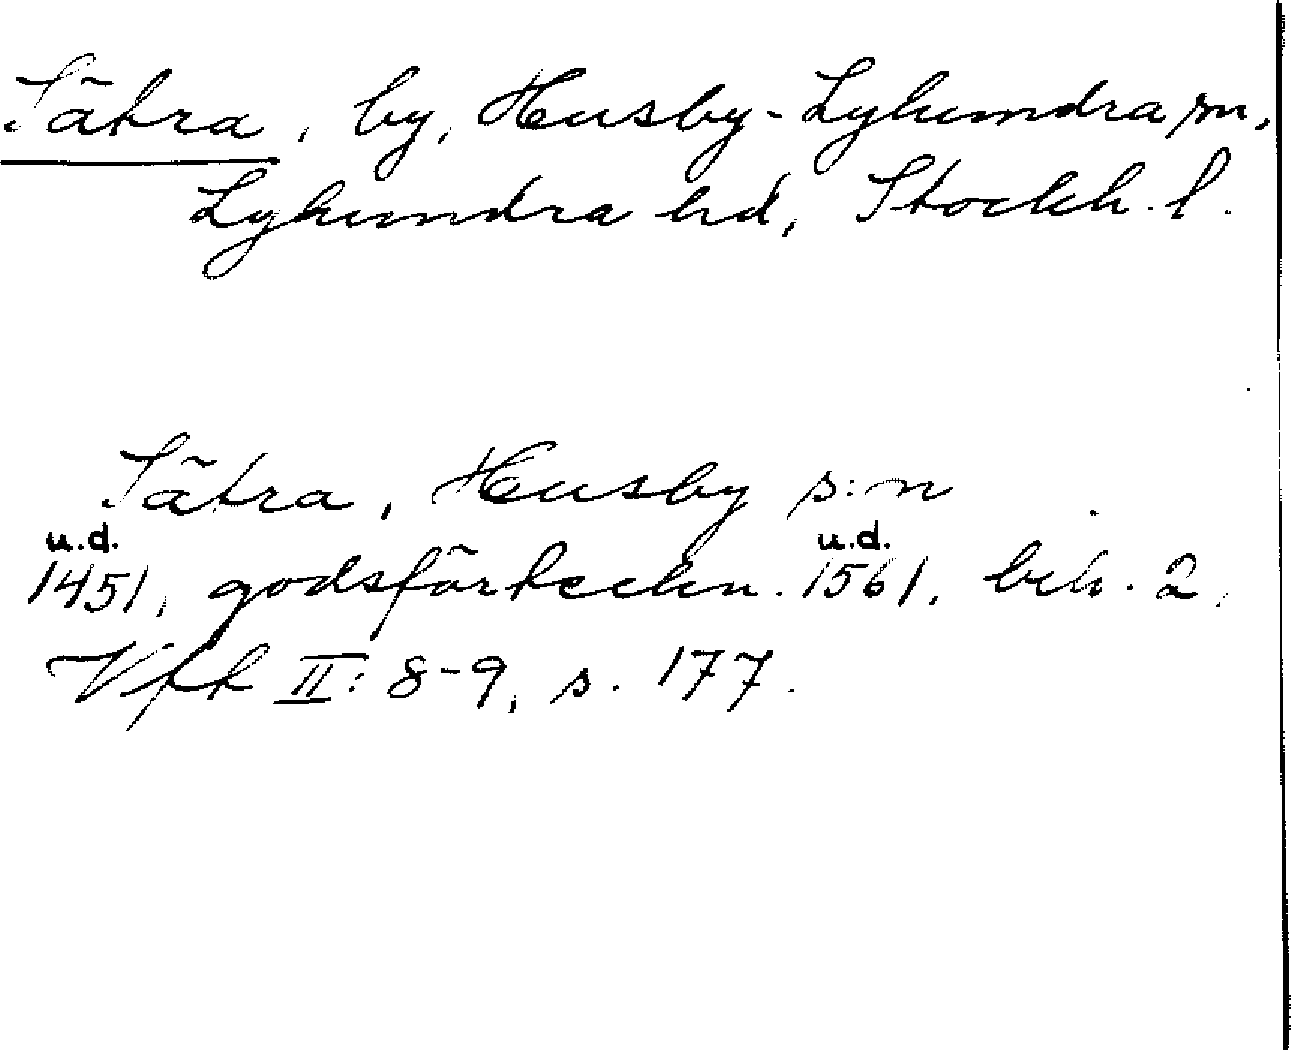 Sätra, by, Husby-Lyhundra sn,
Lyhundra hd, Stockh. l.
Sätra, Husby s:n
u.d. u.d.
1451, godsförteckn. 1561, bih. 2,
Vfk II: 8-9, s. 177.